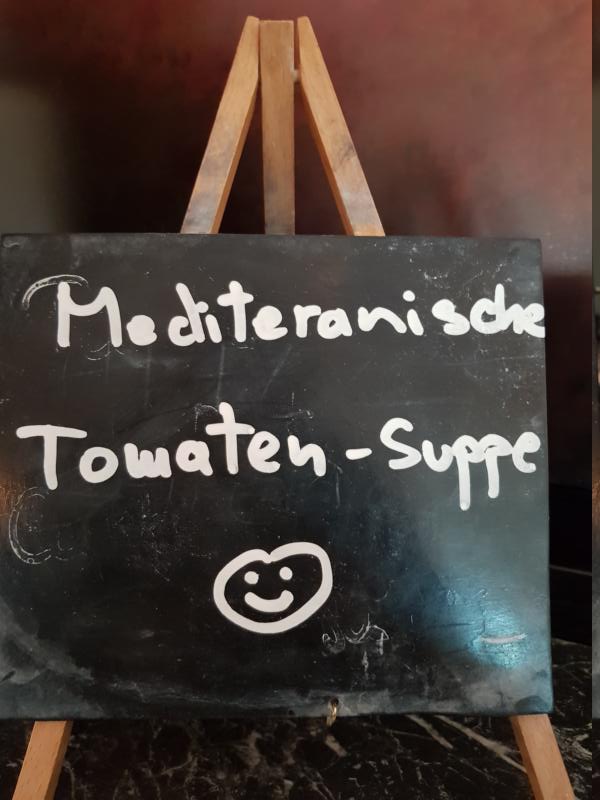 Mediteranische
Tomaten-Suppe